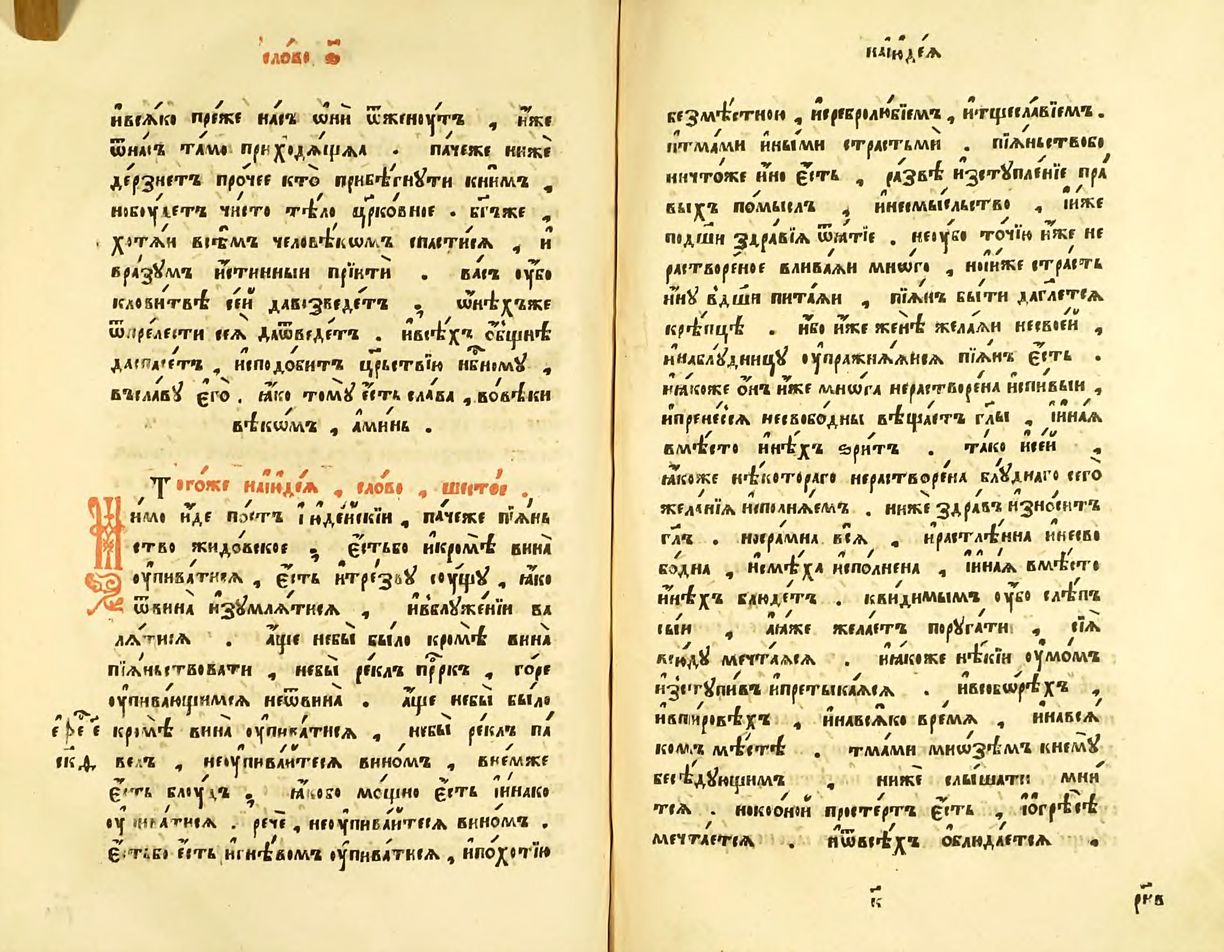 сло́во ѕ҃
ився́ко пре́же на́съ ѡ҆ни̑ ѿженоу́тъ , и҆̀же
ѿна́съ та́мо приходѧ́щаѧ . па́чеже ниже
де́рзнетъ про́чее кто̀ прибѣ́гнути книмъ ,
нобоу́детъ чи́сто тѣ́ло цр҃ко́вное . бг҃ъже ,
хотѧ́и всѣ̑мъ человѣ́кѡмъ спасти́сѧ , и҆
вра́зумъ и҆́стинныи прїити̑ . ва́съ оу҆̀бо
кловитвѣ се́й давозведе́тъ , ѡ҆нѣ́хъже
ѿпре́лести сеѧ̀ даѿведе́тъ . ивсѣ́хъ о҆́бщнѣ
даспасе́тъ , исподо́битъ цр҃ьствїю нб҃ному ,
въсла́ву є҆го̀ . ꙗ҆́ко тому̀ е҆́сть сла́ва , во́вѣки
вѣ́кѡмъ , а҆ми́нь .
Того́же наїꙋде́ѧ , сло́во , шесто́е .
Ми́мо и҆́де по́стъ їюде́искїи , па́чеже пїѧ́нь
ство жидо́вское , є҆́стьбо и҆кромѣ̀ вина̀
оу҆пива́тисѧ , є҆́сть итре́зву соу́щу , ꙗ҆́ко
ѿвина̀ и҆зумлѧ́тисѧ , ивблуже́нїи ва
лѧ́тисѧ . а҆́ще небы̀ бы́ло кромѣ̀ вина̀
пїѧ́ньствовати , небы̀ ре́клъ пр҇рк̑ъ , го́ре
оу҆пива́ющимсѧ неѿвина̀ . а҆́ще небы̀ бы́ло
кромѣ̀ вина̀ оу҆пива́тисѧ , небы̀ ре́клъ па́
ве́лъ , неоу҆пива́йтесѧ вино́мъ , вне́мже
є҆́сть блоу́дъ , ꙗ҆́кобо мо́щно є҆́сть і҆и́нако
оу҆пива́тисѧ . речѐ , неоу҆пива́йтесѧ вино́мъ .
є҆́стьбо е҆́сть игнѣ́вомъ оу҆пива́тисѧ , ипо́хотїю
наїꙋде́ѧ
безмѣ́стною , исребролю́бїемъ , итщесла́вїемъ .
итма́ми и҆ны́ми страстьмѝ . пїѧ́ньствобо
ничто́же и҆́но є҆́сть , ра́звѣ и҆зступле́нїе пра́
выхъ по́мыслъ , инесмы́сльство , іи҆́же
подш҃и здра́вїѧ ѿѧ́тїе . неоу҆́бо то́чїю и҆́же не
раство́реное влива́ѧи мно́го , нои҆́же стра́сть
и҆́ну вд҃ши пита́ѧи , пїѧ́нъ бы́ти даг҃летсѧ
крѣ́пцѣ . и҆́бо и҆́же женѣ̀ жела́ѧи несвое́й ,
инаблудни́цу оу҆пражнѧ́ѧисѧ пїѧ́нъ є҆́сть .
иꙗ҆́коже о҆́нъ и҆́же мно́га нераство́рена испивы́и ,
ипрене́сѧ несвобо́дны вѣща́етъ гл҃ы , іи҆на́ѧ
вмѣ́сто и҆нѣ́хъ ѕри́тъ . та́ко исе́й ,
ꙗ҆́коже нѣ́котораго нераство́рена блу́днаго сего̀
жела́нїѧ исполнѧ́емъ . ниже здра́въ и҆зно́ситъ
гл҃ъ . носра́мна всѧ̀ , ирастлѣ́нна инесво
бо́дна , исмѣ́ха исполнена , іи҆на́ѧ вмѣ́сто
и҆нѣ́хъ блюде́тъ . кви́димымъ оу҆́бо слѣ́пъ
сы́и , ꙗ҆́же жела́етъ поруга́ти , сїѧ̀
всю́ду мечта́ѧсѧ . иꙗ҆́коже нѣ́кїи оу҆мо́мъ
и҆зсту́пивъ ипретыка́ѧсѧ . ивсобо́рѣхъ ,
ивпи́ровѣхъ , инавсѧ́ко вре́мѧ , инавсѧ́
комъ мѣ́стѣ . тма́ми мно́зѣмъ кнему̀
бесѣ́дующимъ , ниже слы́шати мни́
тсѧ . нокоо́ной просте́ртъ є҆́сть , їогрѣ́сѣ
мечта́етсѧ . иѿвсѣ́хъ облюда́етсѧ .
к҃
рк҃в